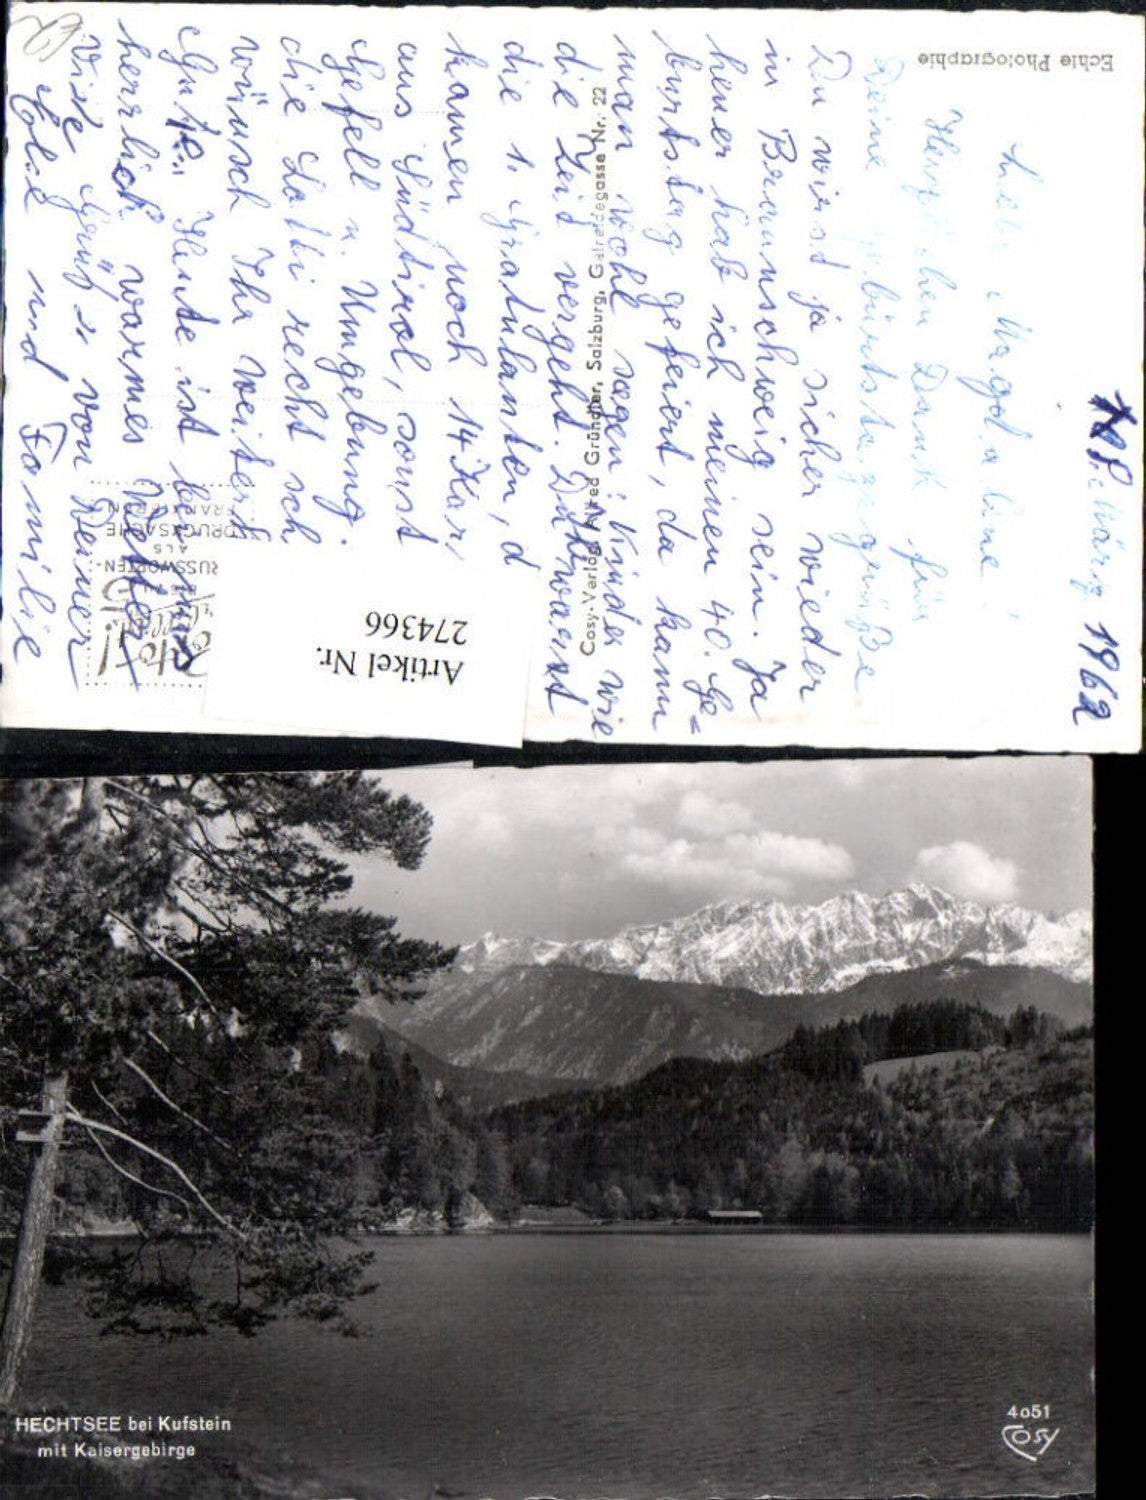 18. März 1962
Liebe Magdaline!
Herzlichen Dank für
Deine Geburtstagsgrüße
Du wirst ja sicher wieder
in Braunschweig sein. Ja
heuer hab ich meinen 40. Ge=
burtstag gefeiert, da kann
man wohl sagen: Kinder wie
die Zeit vergeht. Du warst
die 1. Gratulanten, d
kamen noch 14 Kar,
aus Südtirol, sonst
Gefell u. Umgebung.
die Lotti recht sch
wünsch Ihr weiterh
Gute. Heute ist bei uns
herrlich warmes Wetter
Viele Grüße von Deiner
und Familie
Echte Photographie
Cosy-Verlag, Alfred Gründler, Salzburg, Getreidegasse Nr. 22
ALS
DRUCKSACHE
FRANKIEREN
Artikel Nr.
274366
HECHTSEE bei Kufstein
mit Kaisergebirge
4051
Cosy